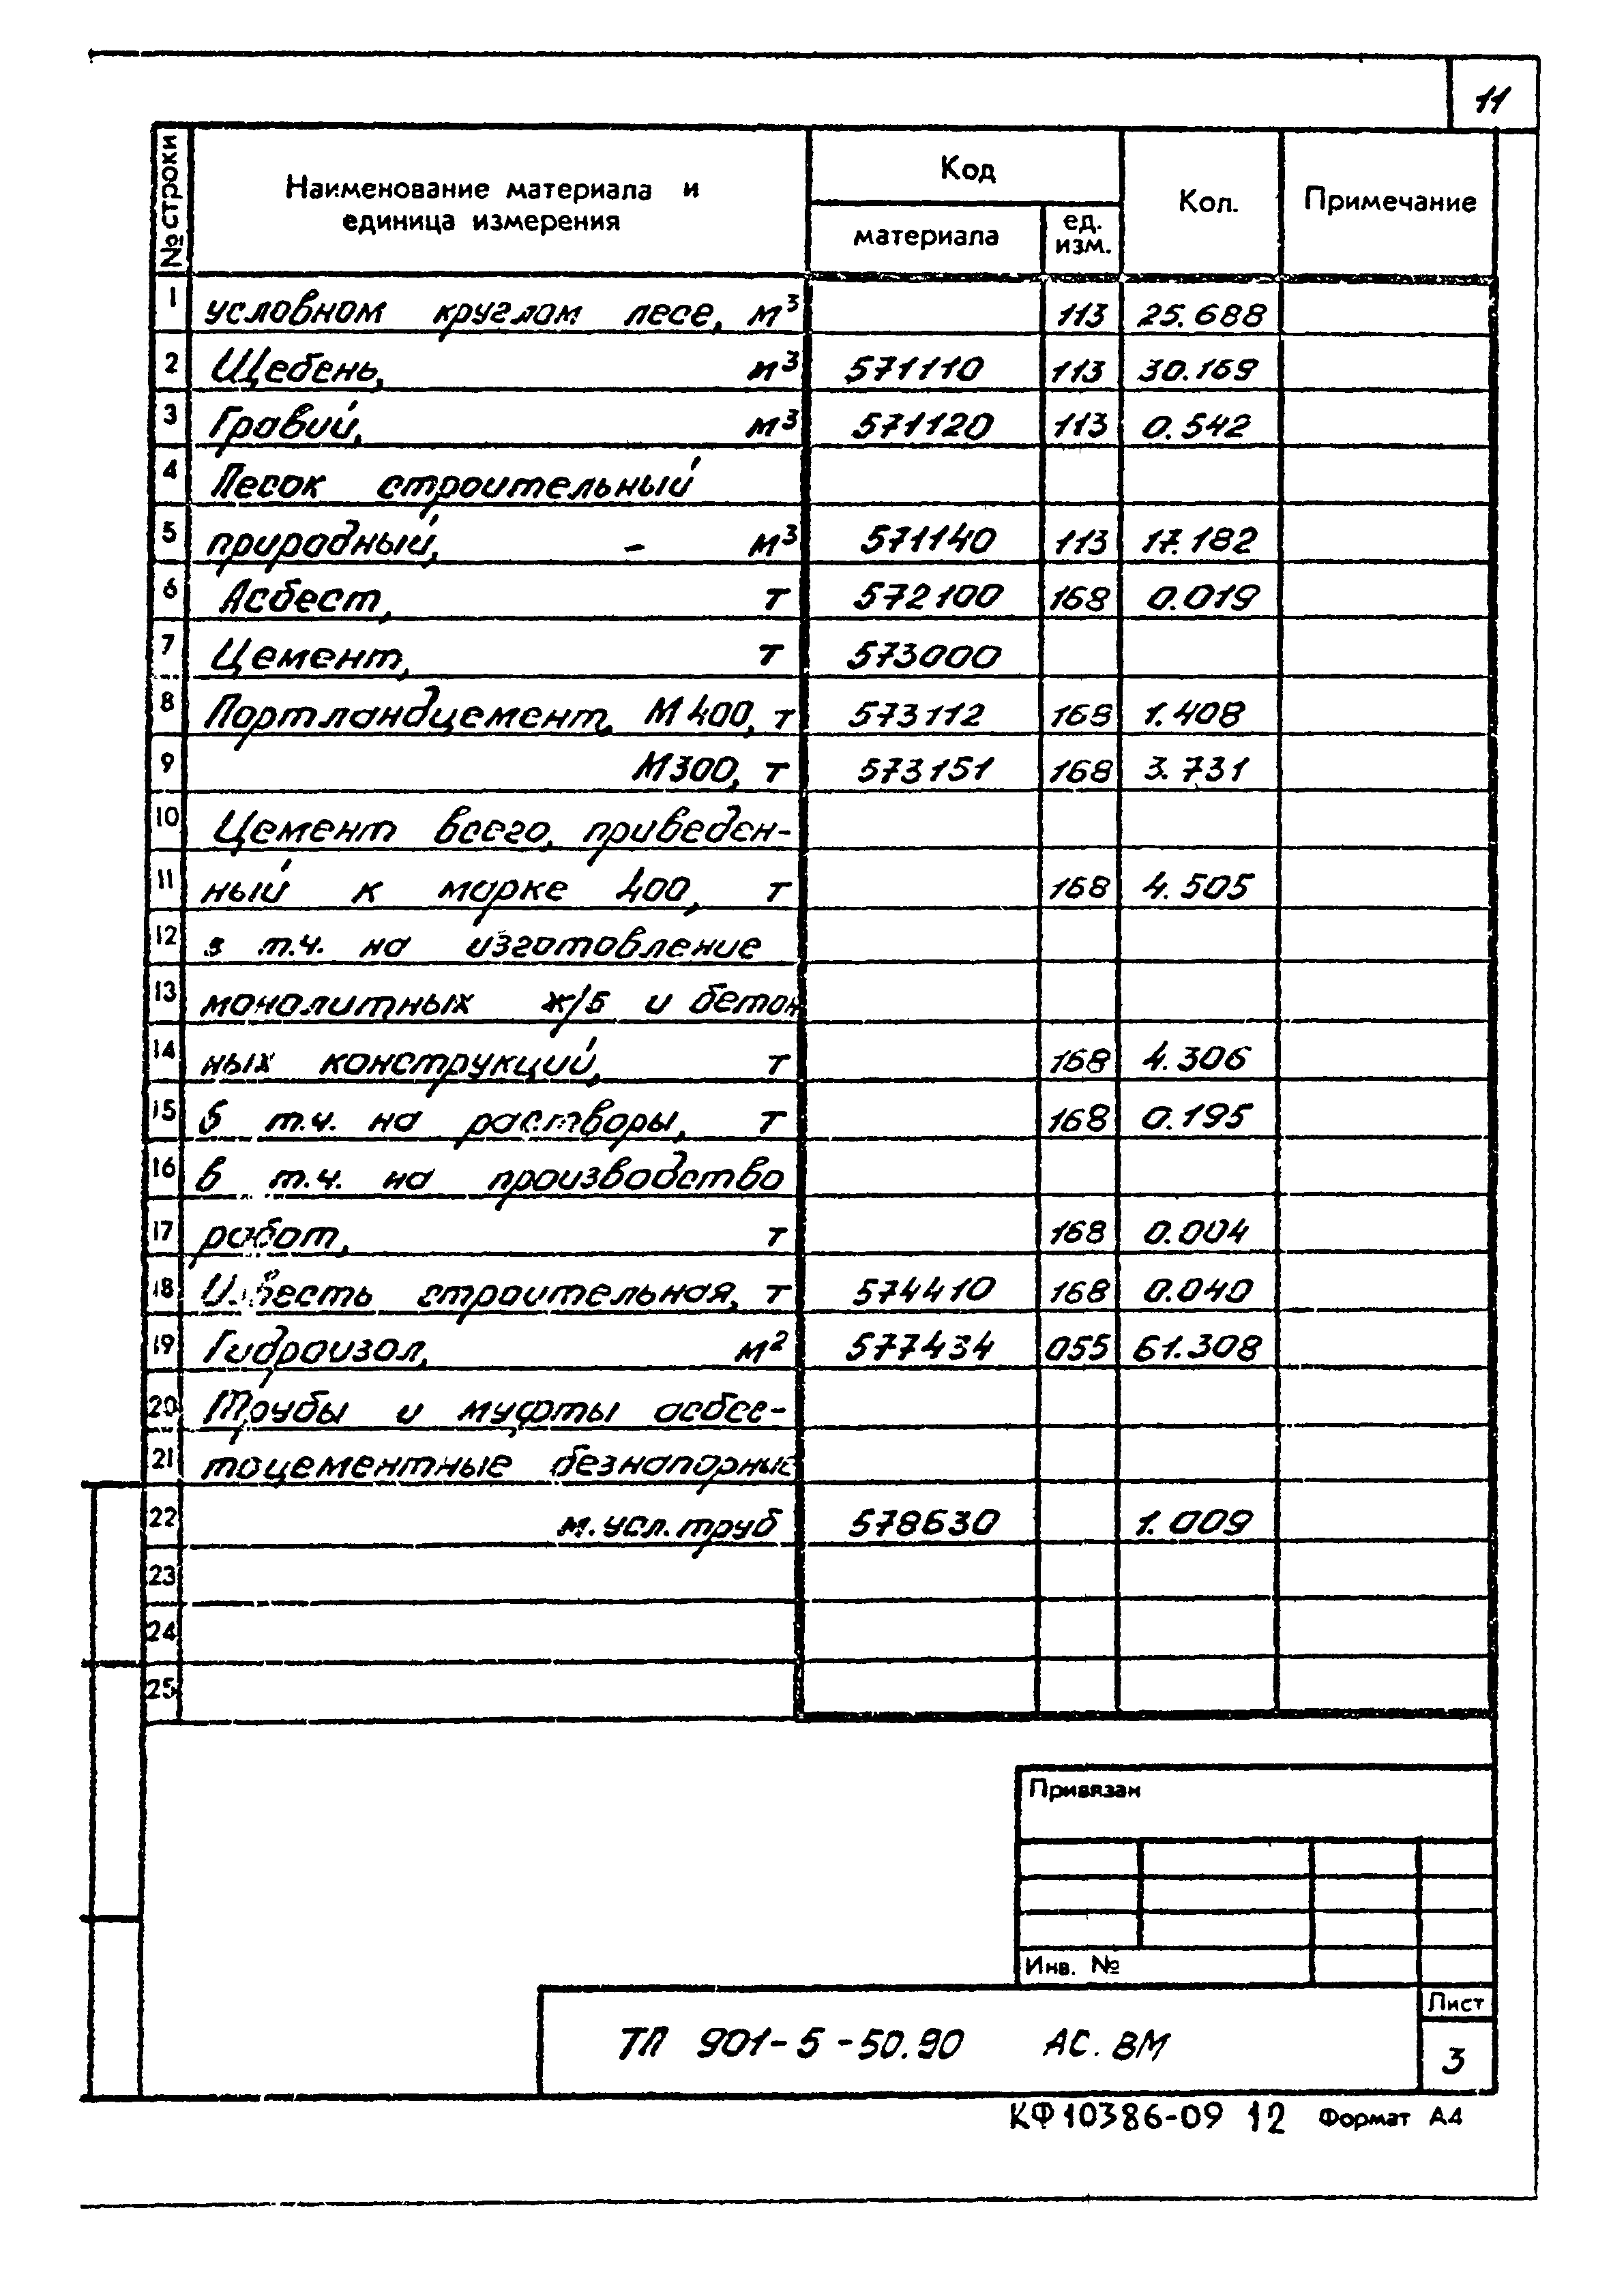 11
№ строки
Наименование материала и
единица измерения
Код
материала
ед.
изм.
Кол.
Примечание
1 условном круглом лесе, м³ 113 25.688
2 Щебень, м³ 571110 113 30.169
3 Гравий, м³ 571120 113 0.542
4 Песок строительный
5 природный, - м³ 571140 113 17.182
6 Асбест, т 572100 168 0.019
7 Цемент, т 573000
8 Портландцемент, М400, т 573112 168 1.408
9 М300, т 573151 168 3.731
10 Цемент всего, приведен-
11 ный к марке 400, т 168 4.505
12 в т.ч. на изготовление
13 монолитных ж/б и бетон
14 ных конструкций, т 168 4.306
15 в т.ч. на растворы, т 168 0.195
16 в т.ч. на производство
17 работ, т 168 0.004
18 Известь строительная, т 574410 168 0.040
19 Гидроизол, м² 577434 055 61.308
20 Трубы и муфты асбес-
21 тоцементные безнапорные
22 м.усл.труб 578630 1.009
23
24
25
Привязан
Инв. №
ТП 901-5-50.90 АС.ВМ
Лист
3
КФ10386-09 12 Формат А4